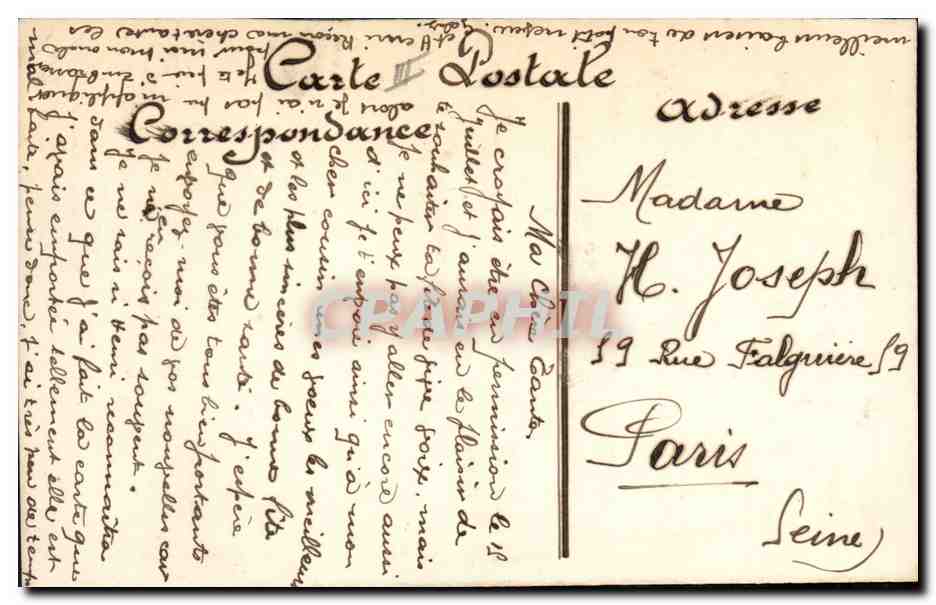 Carte Postale
Correspondance
Adresse
III
Madame
H. Joseph
59 Rue Falguière 59
Paris
Seine
Ma chère Tante,
Je croyais être en permission le 15
Juillet et j'aurais eu le plaisir de
te souhaiter ta fête de vive voix. mais
je ne peux pas y aller encore aussi
d'ici je t'envoie ainsi qu'à mon
cher cousin, mes voeux les meilleurs
et les plus sincères de bonne fête
et de bonne santé. J'espère
que vous êtes tous bien portants
envoyez-moi de vos nouvelles car
je n'en reçois pas souvent.
Je ne sais si Henri reconnaîtra
dans ce que j'ai fait la carte que
j'avais emportée tellement elle est
mal faite, pense donc, j'ai très peu de temps
alors je n'ai pas pu m'appliquer
pour moi mon oncle
et Henri Reçois ma chère tante les
meilleurs baisers de ton petit neveu
CPAPHIL